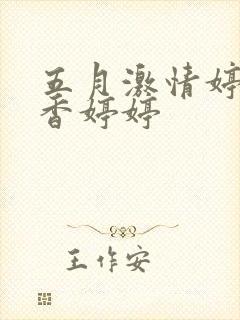 五月激情婷
香婷婷
王作安